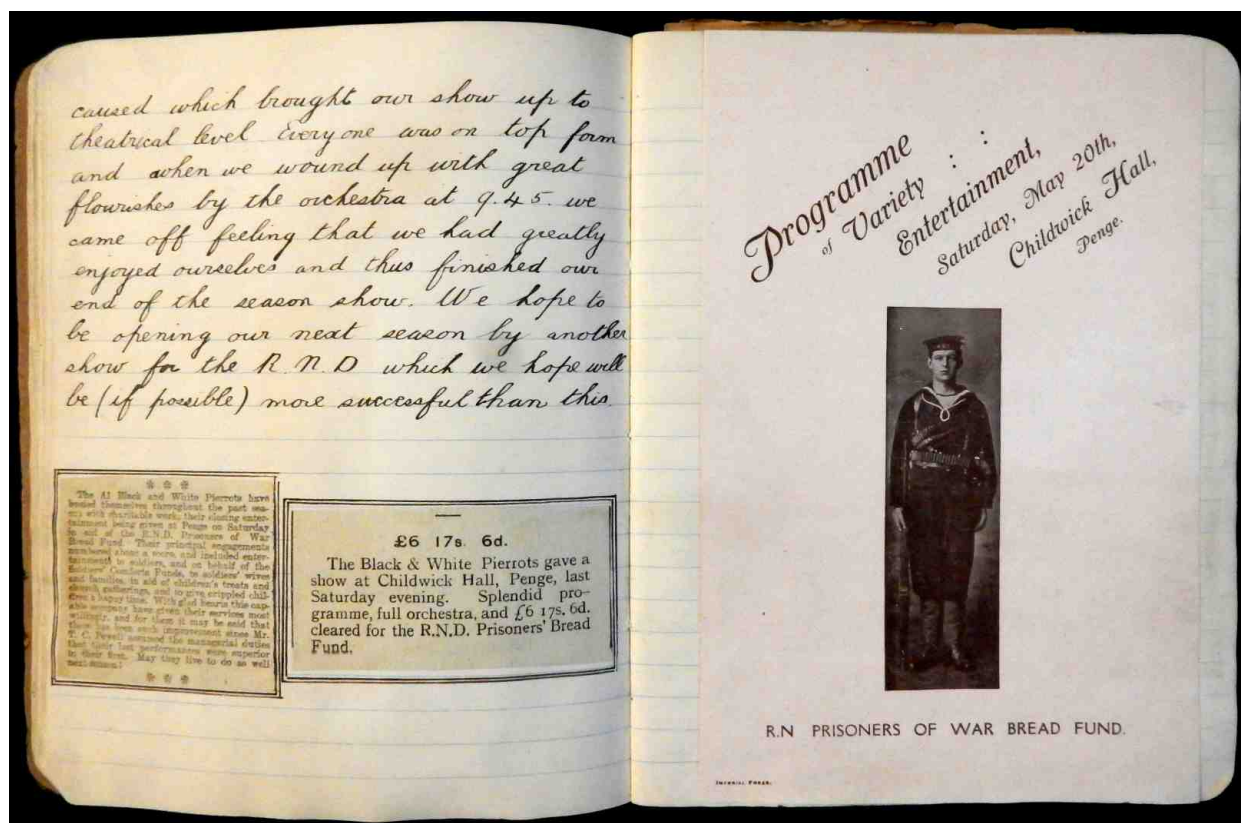 caused which brought our show up to
theatrical level Everyone was on top form
and when we wound up with great
flourishes by the orchestra at 9.45. we
came off feeling that we had greatly
enjoyed ourselves and thus finished our
end of the season show. We hope to
be opening our next season by another
show for the R.N.D which we hope will
be (if possible) more successful than this.
The A1 Black and White Pierrots have
busied themselves throughout the past sea-
son with charitable work, their closing enter-
tainment being given at Penge on Saturday
in aid of the R.N.D. Prisoners of War
Bread Fund. Their principal engagements
numbered about a score, and included enter-
tainments to soldiers, and on behalf of the
Soldiers' Comforts Funds, to soldiers' wives
and families, in aid of children's treats and
church gatherings, and to give crippled chil-
dren a happy time. With glad hearts this cap-
able company have given their services most
willingly, and for them it may be said that
there has been such improvement since Mr.
T. C. Powell assumed the managerial duties
that their last performances were superior
to their first. May they live to do as well
next season!
£6 17s. 6d.
The Black & White Pierrots gave a
show at Childwick Hall, Penge, last
Saturday evening. Splendid pro-
gramme, full orchestra, and £6 17s. 6d.
cleared for the R.N.D. Prisoners' Bread
Fund.
Programme
of Variety : :
Entertainment,
Saturday, May 20th,
Childwick Hall,
Penge.
R.N PRISONERS OF WAR BREAD FUND.
IMPERIAL PRESS.